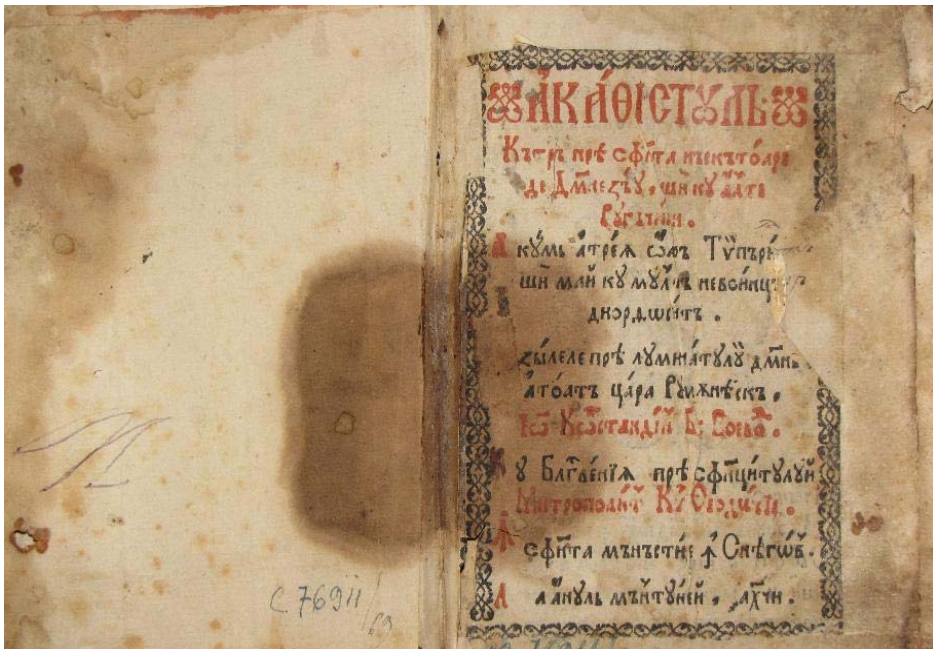 АКАѲІСТꙊЛЬ
Кътръ прѣ сф҃та нъскътоаре
де Дм҃незъꙋ, шѝ кꙋ алте
Рꙋгъчюни.
Акꙋмь атрея ѡ́аръ Тѵпъри
шѝ май кꙋ мꙋлтъ невоинцъ
Ꙟ зылеле прѣ лꙋминатꙋлꙋй дм҃нь
атоатъ цара Рꙋмѫнѣскъ.
Іѡ҃ Кѡстандін Б: Воевод.
Кꙋ Блгⷭ҇венїа прѣ сфинцитꙋлꙋй
Митрополит
сф҃та мънъстире Снѣгѡв.
Ла анꙋль мънтꙋирей. ҂ахчи.
С 7694